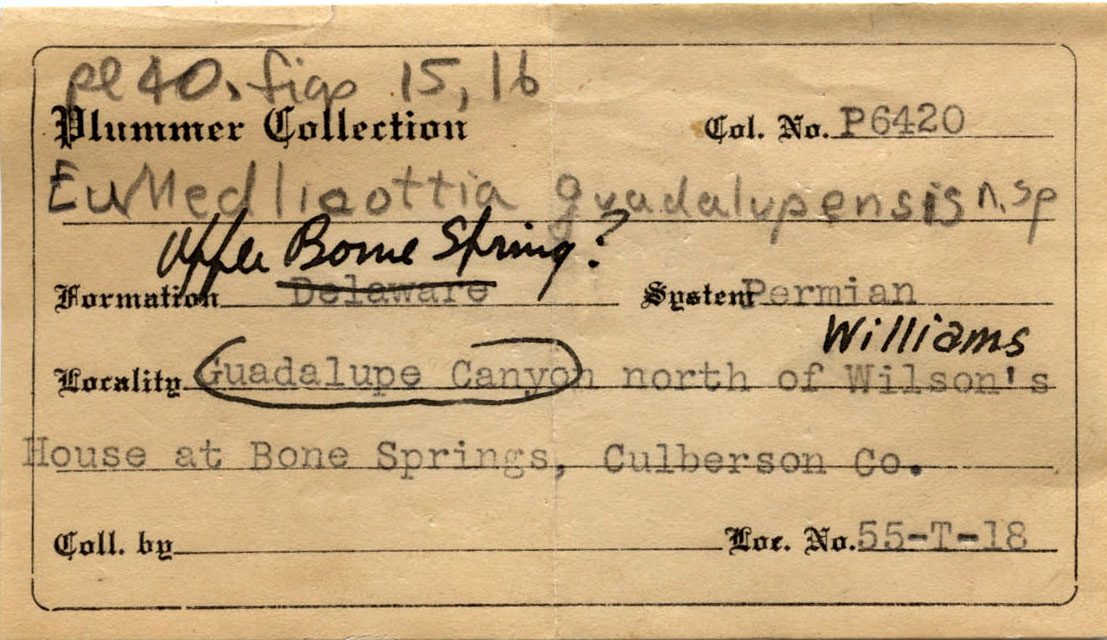 pl 40, figs 15, 16
Plummer Collection Col. No. P6420
EuMedlicottia guadalupensis n. sp
Upper Bone Spring?
Formation Delaware System Permian
Williams
Locality Guadalupe Canyon north of Wilson's
House at Bone Springs, Culberson Co.
Coll. by Loc. No. 55-T-18